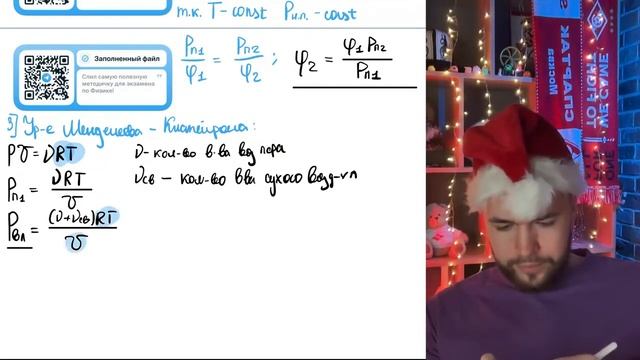 т.к. T - const Pн.п. - const
Заполненный файл
Слил самую полезную
методичку для экзамена
по Физике!
Pп1/φ1 = Pп2/φ2 ; φ2 = φ1 Pп2/Pп1
3] Ур-е Менделеева - Клапейрона:
PV = νRT ν - кол-во в-ва вод пара
Pп1 = νRT/V νсв - кол-во в-ва сухого возд-ха
Pвл = (ν+νсв)RT/V
Москва
СПАРТАК
TO FIGHT
WE CAME